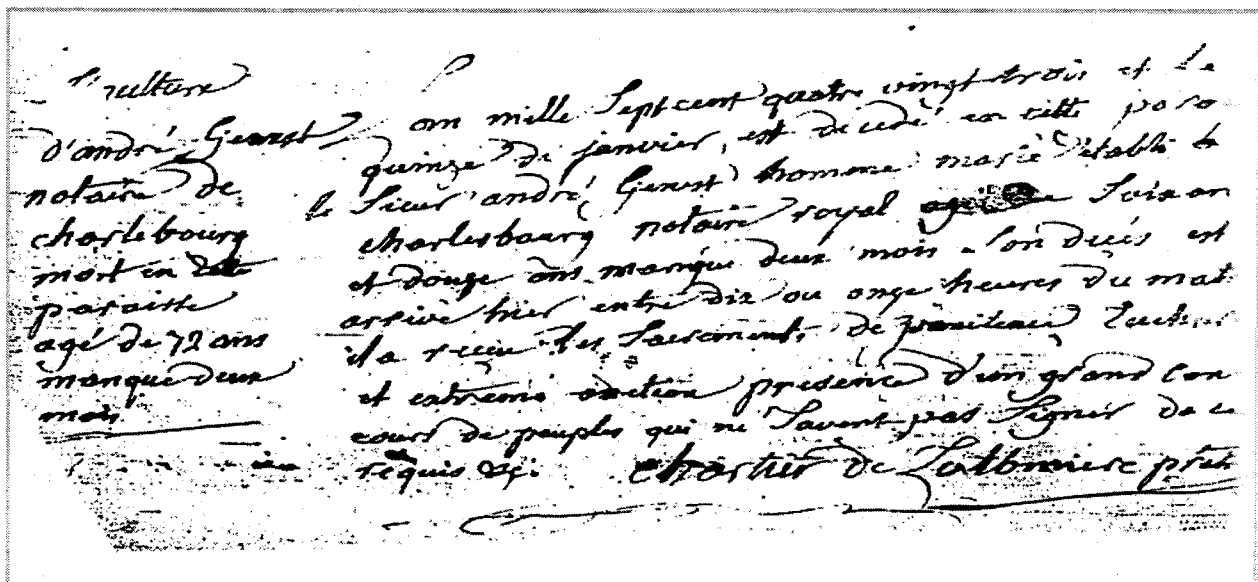 d'andré Genest
notaire de
charlebourg
mort en cette
paroisse
agé de 72 ans
manque deux
mois
an mille Sept cent quatre vingt trois et le
quinze de janvier, est decedé en cette paro
le Sieur andré Genest homme marié etabli a
charlesbourg notaire royal agé de Soixan
et douze ans manque deux mois Son decés est
arrivé hier entre dix ou onze heures du mat
il a reçeu les Sacrements de penitence Euchar
et extreme onction presence d'un grand Con
cours de peuples qui ne Savent pas Signer de ce
requis
Chartier de Lotbiniere ptre